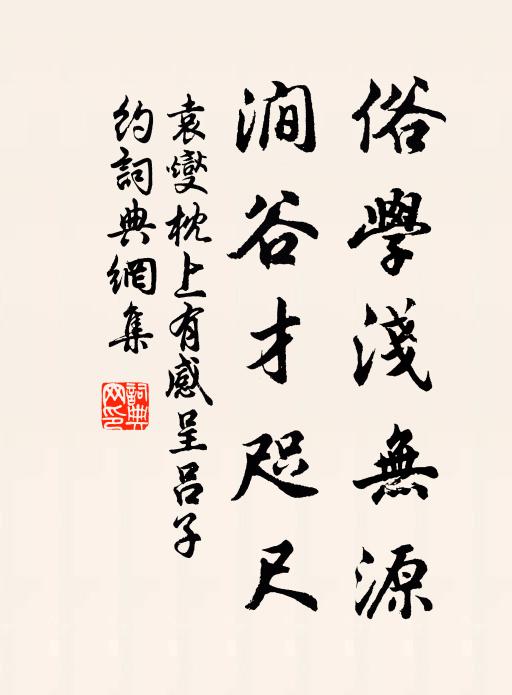 俗學淺無源
澗谷才咫尺
袁燮枕上有感呈呂子
約詞典網集
詞典網印